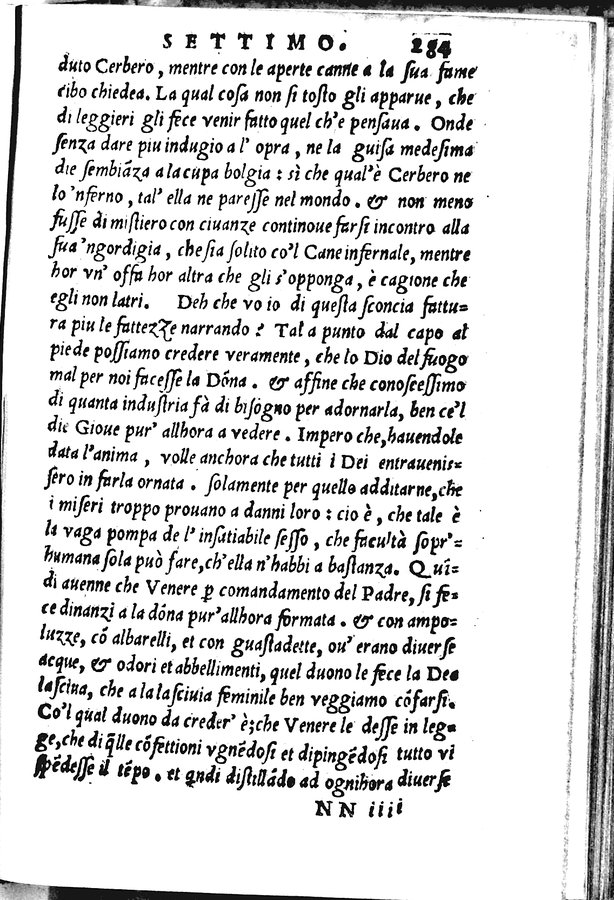 SETTIMO. 284
duto Cerbero, mentre con le aperte canne a la ſua fame
cibo chiedea. La qual coſa non ſi toſto gli apparue, che
di leggieri gli fece venir fatto quel ch'e penſaua. Onde
ſenza dare piu indugio a l' opra, ne la guiſa medeſima
die ſembiāza a la cupa bolgia: sì che qual'è Cerbero ne
lo 'nferno, tal' ella ne pareſſe nel mondo. & non meno
fuſſe di miſtiero con ciuanze continoue farſi incontro alla
ſua 'ngordigia, che ſia ſolito co'l Cane infernale, mentre
hor vn' offa hor altra che gli s'opponga, è cagione che
egli non latri. Deh che vo io di queſta ſconcia fattu=
ra piu le fattezze narrando? Tal a punto dal capo al
piede poſſiamo credere veramente, che lo Dio del fuogo
mal per noi faceſſe la Dōna. & affine che conoſceſſimo
di quanta induſtria fà di biſogno per adornarla, ben ce'l
die Gioue pur' allhora a vedere. Impero che, hauendole
data l'anima, volle anchora che tutti i Dei entraueniſ=
ſero in farla ornata. ſolamente per quello additarne, che
i miſeri troppo prouano a danni loro: cio è, che tale è
la vaga pompa de l' inſatiabile ſeſſo, che facultà ſopr'=
humana ſola può fare, ch'ella n'habbi a baſtanza. Quī=
di auenne che Venere ꝑ comandamento del Padre, ſi fe=
ce dinanzi a la dōna pur'allhora formata. & con ampo=
luzze, cō albarelli, et con guaſtadette, ou' erano diuerſe
acque, & odori et abbellimenti, quel duono le fece la Dea
laſciua, che a la laſciuia feminile ben veggiamo cōfarſi.
Co'l qual duono da creder' è; che Venere le deſſe in leg=
ge, che di q̄lle cōfettioni vgnēdoſi et dipingēdoſi tutto vi
ſpēdeſſe il tēpo. et qndi diſtillādo ad ognihora diuerſe
NN iiii